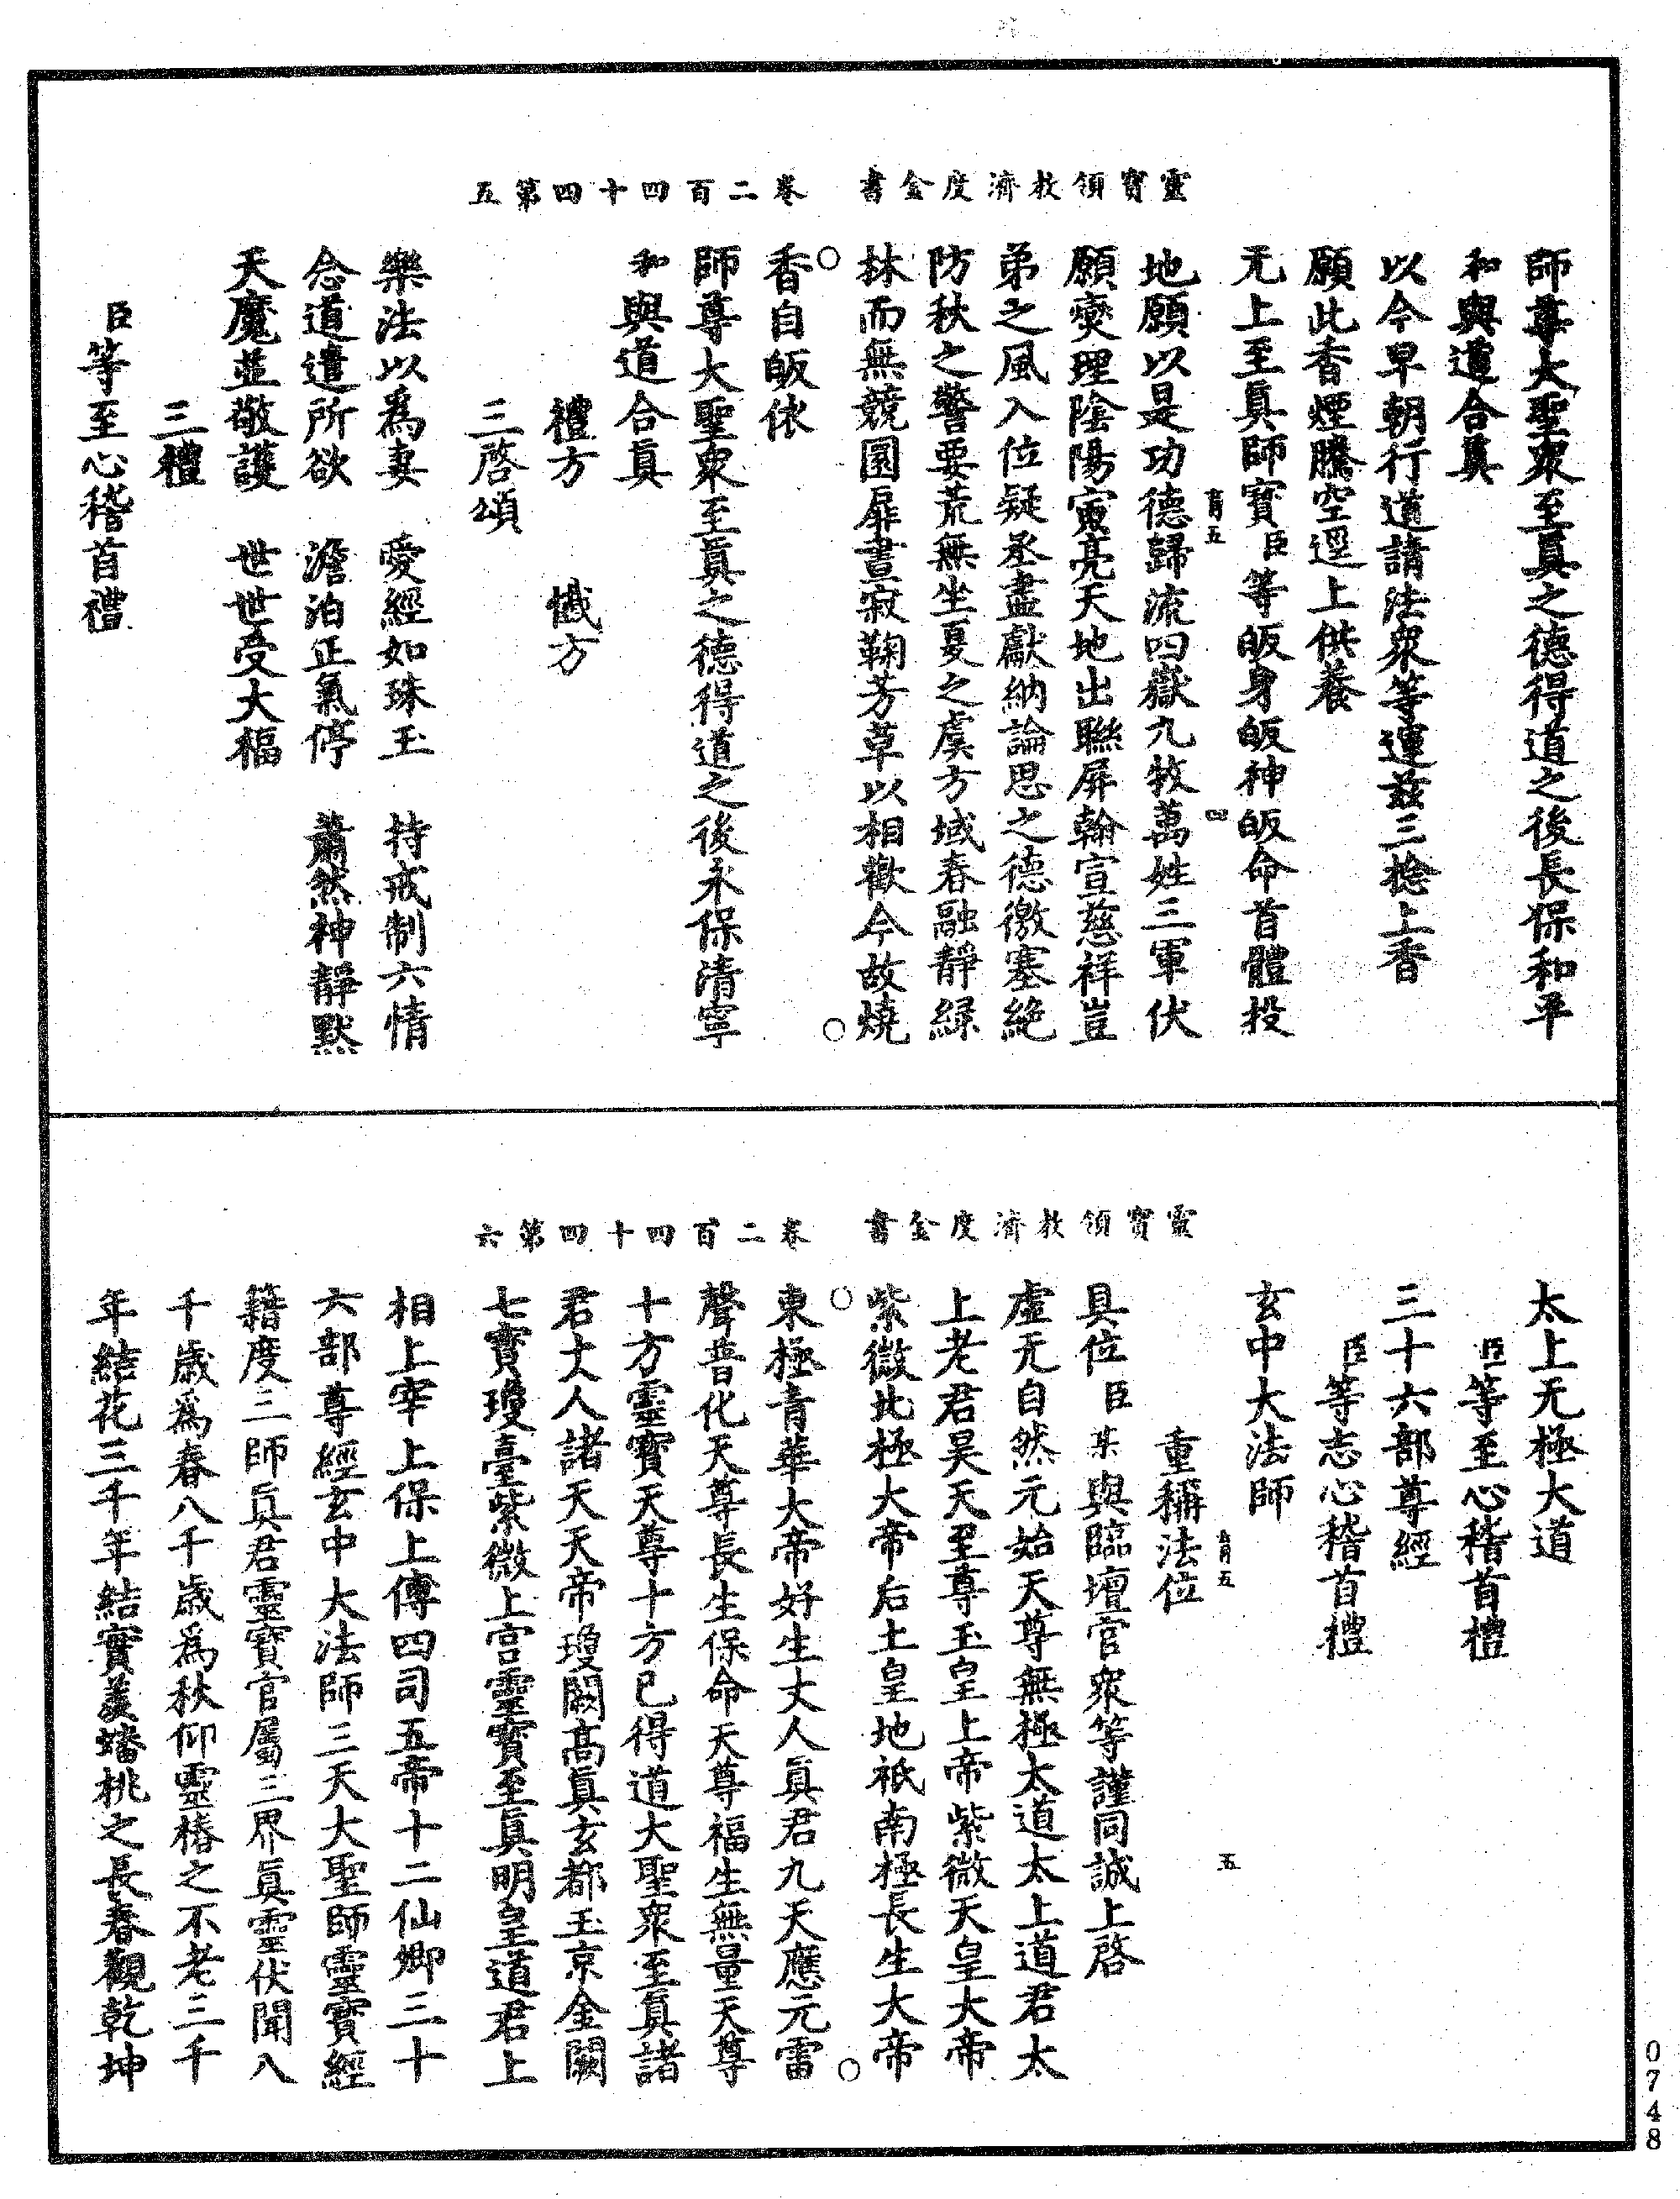 靈寶領敎濟度金書　卷二百四十四第五
師尊大聖衆至眞之德得道之後長保和平
和與道合眞
以今早朝行道請法衆等運茲三捻上香
願此香煙騰空逕上供養
无上至眞師寶臣等皈身皈神皈命首體投
青五　四
地願以是功德歸流四嶽九牧萬姓三軍伏
願燮理陰陽寅亮天地出聯屏翰宣慈祥豈
弟之風入位疑丞盡獻納論思之德徼塞絶
防秋之警要荒無坐戛之虞方域春融靜緑
林而無競園扉晝寂鞠芳草以相歡今故燒
香自皈依
師尊大聖衆至眞之德得道之後永保清寧
和與道合眞
禮方　懺方
三啓頌
樂法以爲妻　愛經如珠玉　持戒制六情
念道遣所欲　澹泊正氣停　蕭然神靜默
天魔並敬護　世世受大福
三禮
臣等至心稽首禮
靈寶領敎濟度金書　卷二百四十四第六
太上无極大道
臣等至心稽首禮
三十六部尊經
臣等志心稽首禮
玄中大法師
青五　五
重稱法位
具位臣某與臨壇官衆等謹同誠上啓
虛无自然元始天尊無極太道太上道君太
上老君昊天至尊玉皇上帝紫微天皇大帝
紫微北極大帝后土皇地祇南極長生大帝
東極青華大帝好生丈人眞君九天應元雷
聲普化天尊長生保命天尊福生無量天尊
十方靈寶天尊十方已得道大聖衆至眞諸
君丈人諸天天帝瓊闕高眞玄都玉京金闕
七寶瓊臺紫微上宮靈寶至眞明皇道君上
相上宰上保上傅四司五帝十二仙卿三十
六部尊經玄中大法師三天大聖師靈寶經
籍度三師眞君靈寶官屬三界眞靈伏聞八
千歲爲春八千歲爲秋仰靈椿之不老三千
年結花三千年結實羨蟠桃之長春觀乾坤
0748